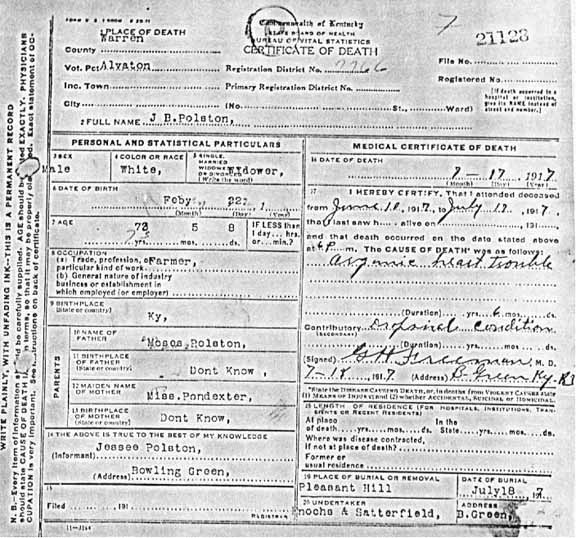 Commonwealth of Kentucky
STATE BOARD OF HEALTH
BUREAU OF VITAL STATISTICS
CERTIFICATE OF DEATH
7
21123
1 PLACE OF DEATH
County Warren
Vot. Pct Alvaton
Inc. Town
City
Registration District No.
Primary Registration District No.
(No. St., Ward)
File No.
Registered No.
[If death occurred in a hospital or institution, give its NAME instead of street and number.]
2 FULL NAME J B. Polston,
PERSONAL AND STATISTICAL PARTICULARS
3 SEX Male
4 COLOR OR RACE White,
5 SINGLE, MARRIED WIDOWED OR DIVORCED (Write the word) Widower,
6 DATE OF BIRTH
Feby, 22,
(Month) (Day)
7 AGE
5 8
yrs. mos. ds.
IF LESS than 1 day... hrs. or... min.?
8 OCCUPATION
(a) Trade, profession, or particular kind of work Farmer,
(b) General nature of industry business or establishment in which employed (or employer)
9 BIRTHPLACE
(State or country) Ky,
PARENTS
10 NAME OF FATHER Moses Polston,
11 BIRTHPLACE OF FATHER (State or country) Dont Know,
12 MAIDEN NAME OF MOTHER Miss. Pondexter,
13 BIRTHPLACE OF MOTHER (State or country) Dont Know,
14 THE ABOVE IS TRUE TO THE BEST OF MY KNOWLEDGE
(Informant) Jessee Polston,
(Address) Bowling Green,
15
Filed , 191
REGISTRAR
MEDICAL CERTIFICATE OF DEATH
16 DATE OF DEATH
17 1917
(Month) (Day) (Year)
17 I HEREBY CERTIFY, That I attended deceased
from June 10, 1917, to July 17, 1917,
that I last saw h alive on , 191
and that death occurred on the date stated above
at m. The CAUSE OF DEATH* was as follows:
organic heart trouble
(Duration) yrs. 6 mos. ds.
Contributory Dropsical condition
(SECONDARY)
(Duration) yrs. mos. ds.
(Signed) M. D.
7-18, 1917 (Address) B. Green Ky.
*State the DISEASE CAUSING DEATH, or, in deaths from VIOLENT CAUSES state
(1) MEANS OF INJURY; and (2) whether ACCIDENTAL, SUICIDAL OR HOMICIDAL.
18 LENGTH OF RESIDENCE (FOR HOSPITALS, INSTITUTIONS, TRANSIENTS OR RECENT RESIDENTS)
At place of death yrs. mos. ds. In the State yrs. mos. ds.
Where was disease contracted, if not at place of death?
Former or usual residence
19 PLACE OF BURIAL OR REMOVAL
Pleasant Hill
DATE OF BURIAL
July 18
20 UNDERTAKER
& Satterfield,
ADDRESS
B.Green,
11-3184
WRITE PLAINLY, WITH UNFADING INK—THIS IS A PERMANENT RECORD
N. B.—Every item of information should be carefully supplied. AGE should be stated EXACTLY. PHYSICIANS
should state CAUSE OF DEATH in terms, so that it may be properly classified. Exact statement of OC-
CUPATION is very important. See instructions on back of certificate.